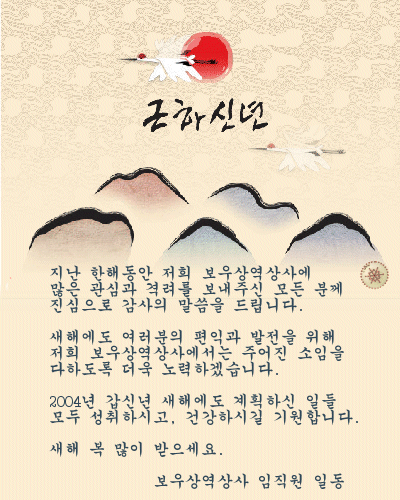 근하신년
지난 한해동안 저희 보우상역상사에
많은 관심과 격려를 보내주신 모든 분께
진심으로 감사의 말씀을 드립니다.
새해에도 여러분의 편익과 발전을 위해
저희 보우상역상사에서는 주어진 소임을
다하도록 더욱 노력하겠습니다.
2004년 갑신년 새해에도 계획하신 일들
모두 성취하시고, 건강하시길 기원합니다.
새해 복 많이 받으세요.
보우상역상사 임직원 일동